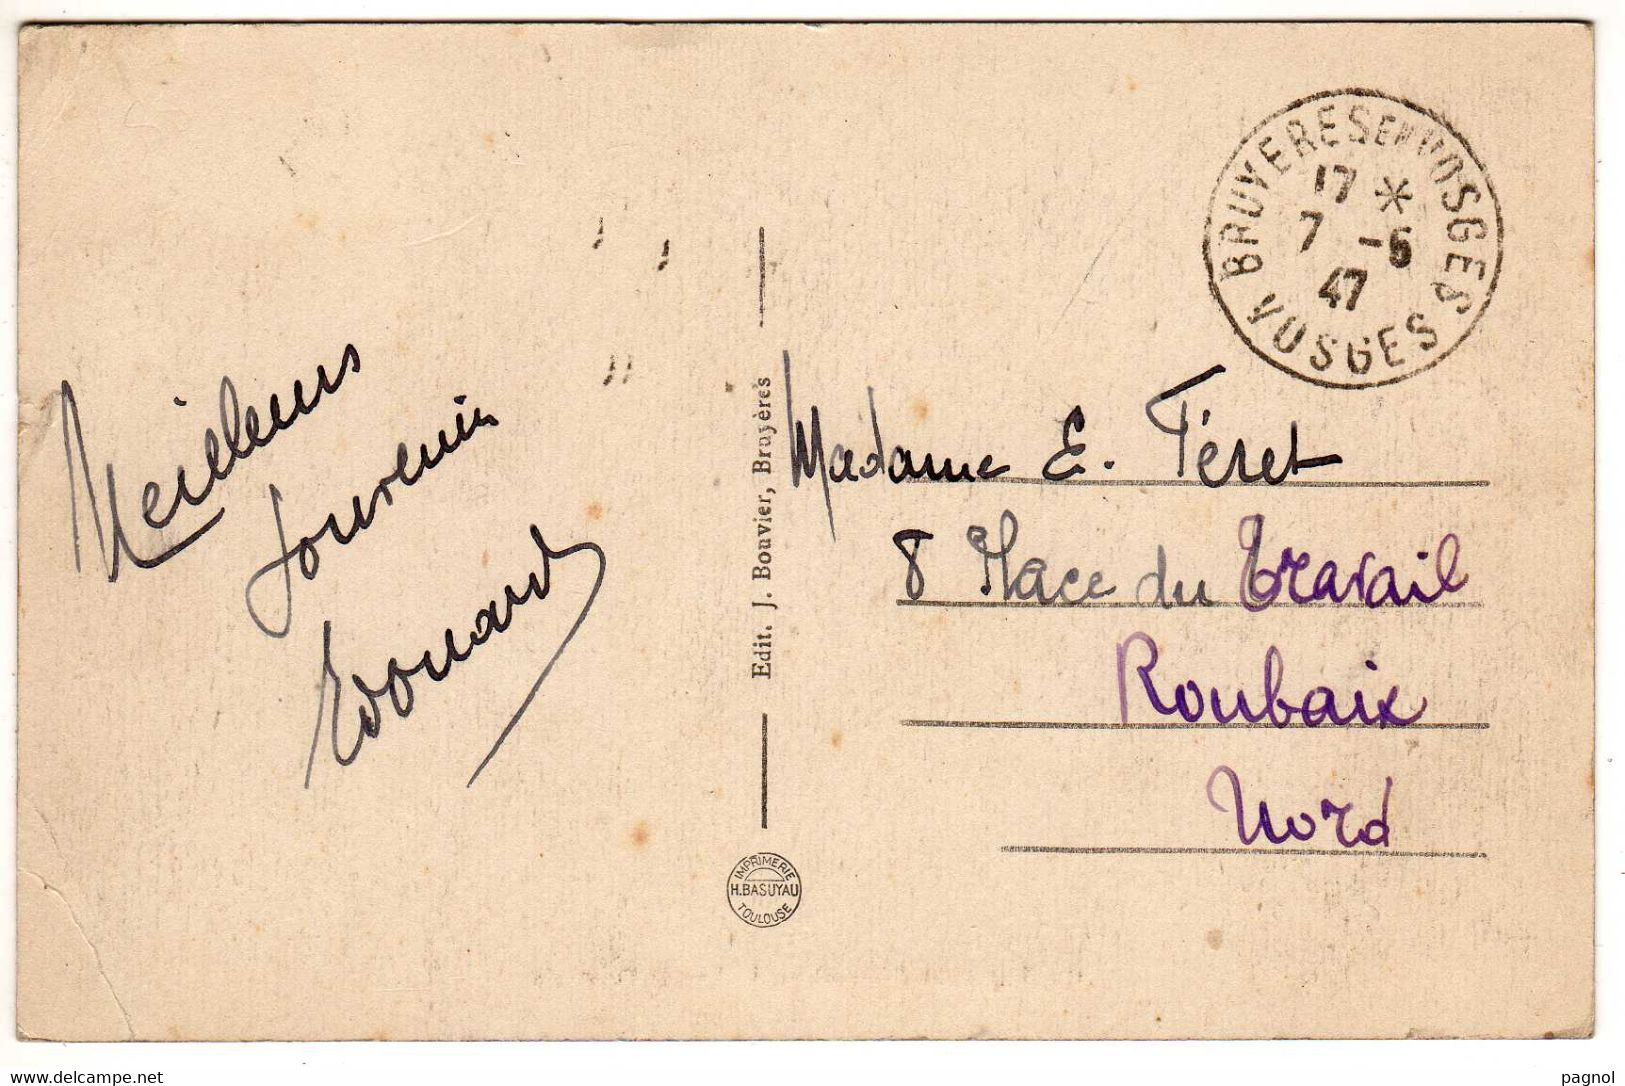 Meilleurs
souvenirs
Edouard
Edit. J. Bouvier, Bruyères
IMPRIMERIE
H. BASUYAU
TOULOUSE
BRUYERES EN VOSGES
17 *
7 -6
47
VOSGES
Madame E. Féret
8 Place du Travail
Roubaix
Nord
delcampe.net
pagnol